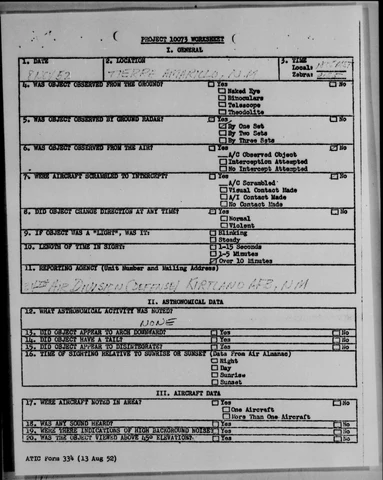 PROJECT 10073 WORKSHEET
I. GENERAL
1. DATE 2. LOCATION 3. TIME
Local:
Zebra:
TIERRE AMARILLO, N.M.
4. WAS OBJECT OBSERVED FROM THE GROUND? Yes No
Naked Eye
Binoculars
Telescope
Theodolite
5. WAS OBJECT OBSERVED BY GROUND RADAR? Yes No
By One Set
By Two Sets
By Three Sets
6. WAS OBJECT OBSERVED FROM THE AIR? Yes No
A/C Observed Object
Interception Attempted
No Intercept Attempted
7. WERE AIRCRAFT SCRAMBLED TO INTERCEPT? Yes No
A/C Scrambled
Visual Contact Made
A/I Contact Made
No Contact Made
8. DID OBJECT CHANGE DIRECTION AT ANY TIME? Yes No
Normal
Violent
9. IF OBJECT WAS A "LIGHT", WAS IT: Blinking
Steady
10. LENGTH OF TIME IN SIGHT: 1-15 Seconds
1-5 Minutes
Over 10 Minutes
11. REPORTING AGENCY (Unit Number and Mailing Address)
AIR DIVISION (DEFENSE) KIRTLAND AFB, N.M
II. ASTRONOMICAL DATA
12. WHAT ASTRONOMICAL ACTIVITY WAS NOTED?
NONE
13. DID OBJECT APPEAR TO ARCH DOWNWARD? Yes No
14. DID OBJECT HAVE A TAIL? Yes No
15. DID OBJECT APPEAR TO DISINTEGRATE? Yes No
16. TIME OF SIGHTING RELATIVE TO SUNRISE OR SUNSET (Data From Air Almanac)
Night
Day
Sunrise
Sunset
III. AIRCRAFT DATA
17. WERE AIRCRAFT NOTED IN AREA? Yes No
One Aircraft
More Than One Aircraft
18. WAS ANY SOUND HEARD? Yes No
19. WERE THERE INDICATIONS OF HIGH BACKGROUND NOISE? Yes No
20. WAS THE OBJECT VIEWED ABOVE 45° ELEVATION? Yes No
ATIC Form 334 (13 Aug 52)